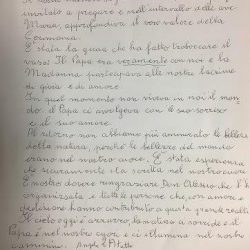 invitato a pregare e nell'intervallo delle ave
Maria, approfondiva il vero valore della
Cerimonia.
E' stata la guaia che ha fatto traboccare il
vaso! Il Papa era veramente con noi e la
Madonna partecipava alle nostre lacrime
di gioia e di amore.
In quel momento non viveva in noi il mon-
do. il Papa ci avvolgeva con il suo sorriso
e il suo amore.
Al ritorno non abbiamo più ammirato le bellezze
della natura, perché le bellezze del mondo
erano nel nostro cuore. E' stata esperienza
che sicuramente l'ha scritta nel nostro cuore
E' nostro dovere ringraziare Don Alessio che l'ha
organizzata e tutte le persone che, con amore e
dedizione hanno contribuito a questa grande
Il cielo oggi è azzurro, la natura ci sorride e il
Papa è nel nostro cuore e ci illumina nel nostro
cammino.